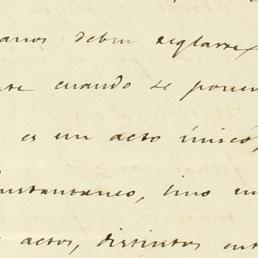 deben reglarse
cuando se ponen
es un acto único,
instantaneo, sino un
actos, distintos ent